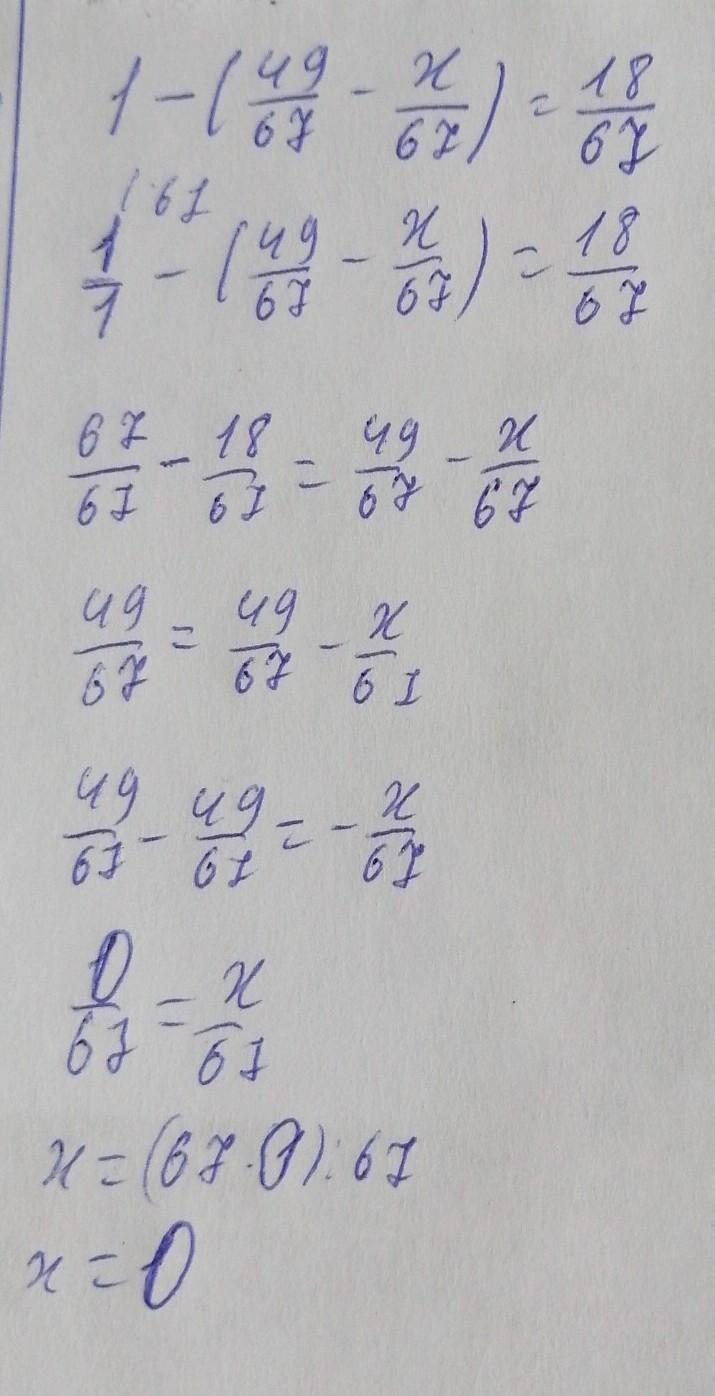 1 - (49/67 - x/67) = 18/67
1/1 (67 - (49/67 - x/67) = 18/67
67/67 - 18/67 = 49/67 - x/67
49/67 = 49/67 - x/67
49/67 - 49/67 = - x/67
0/67 = x/67
x = (67 · 0) : 67
x = 0